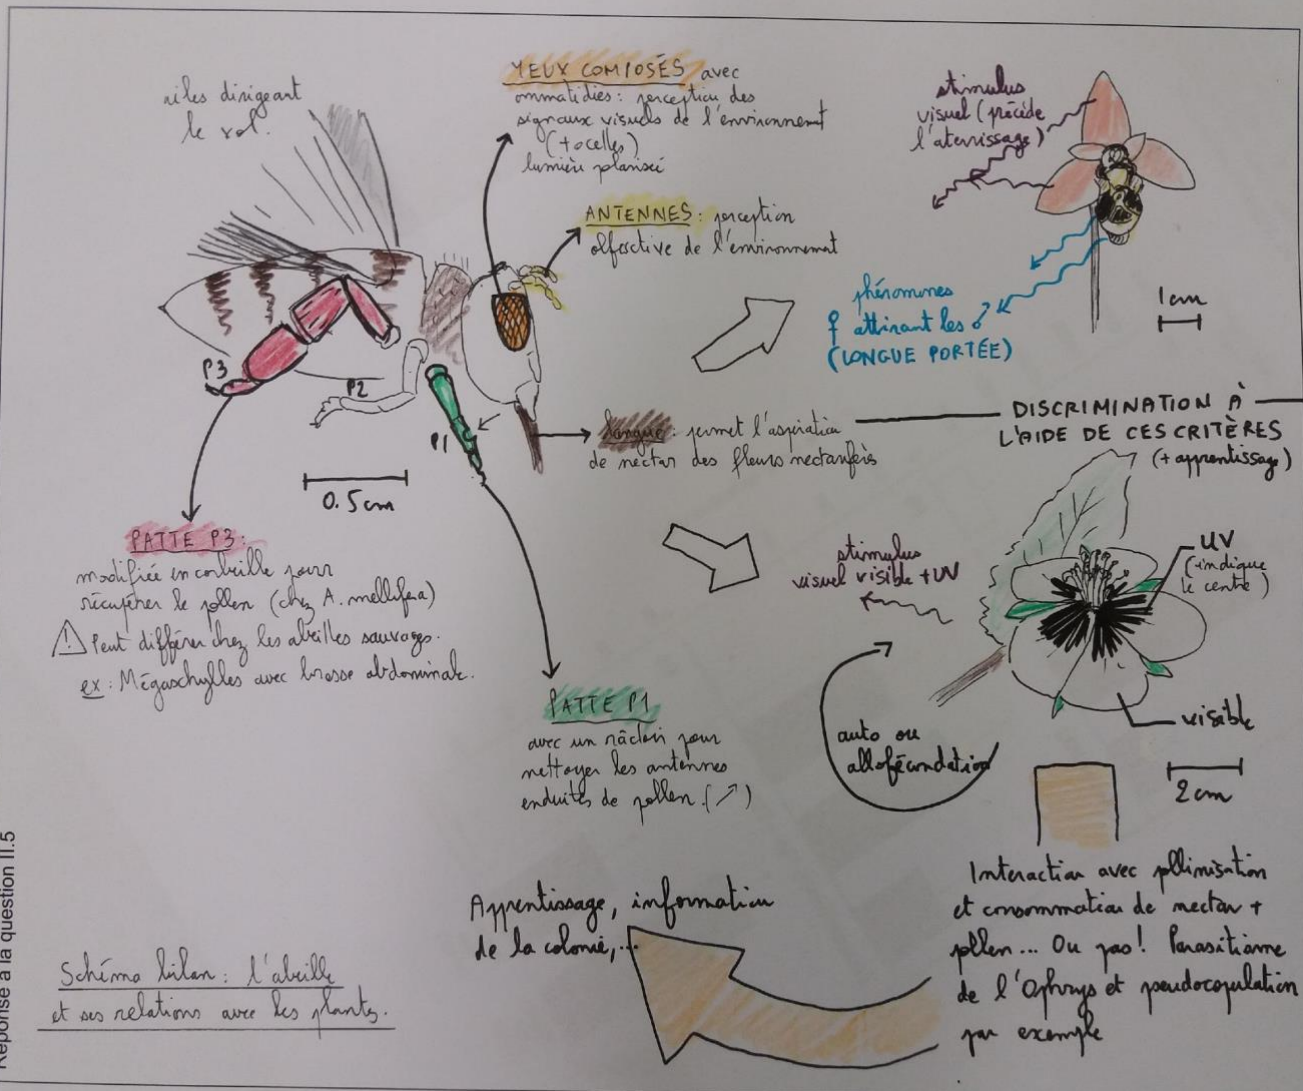 ailes dirigeant
le vol.
YEUX COMPOSÉS avec
ommatidies : perception des
signaux visuels de l'environnement
(+ocelles)
lumière polarisée
ANTENNES : perception
olfactive de l'environnement
stimulus
visuel (précède
l'aterrissage)
phéromones
♀ attirant les ♂
(LONGUE PORTÉE)
1cm
P3
P2
P1
0.5 cm
langue : permet l'aspiration
de nectar des fleurs nectarifères
DISCRIMINATION À
L'AIDE DE CES CRITÈRES
(+ apprentissage)
PATTE P3 :
modifiée en corbeille pour
récupérer le pollen (chez A. mellifera)
⚠ Peut différer chez les abeilles sauvages.
ex : Mégaschylles avec brosse abdominale.
stimulus
visuel visible + UV
UV
(indique
le centre)
visible
auto ou
allofécondation
2cm
PATTE P1
avec un râcloir pour
nettoyer les antennes
enduites de pollen. (↗)
Interaction avec pollinisation
et consommation de nectar +
pollen... Ou pas! Parasitisme
de l'Ophrys et pseudocopulation
par exemple
Apprentissage, information
de la colonie,...
Schéma bilan : l'abeille
et ses relations avec les plantes.
Réponse à la question II.5